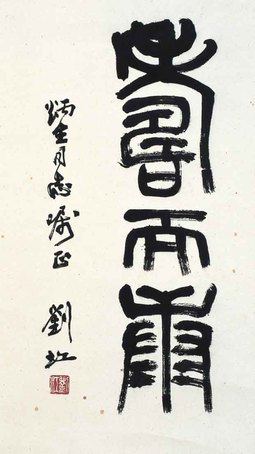 壽而康
炳生同志嘱正 劉江